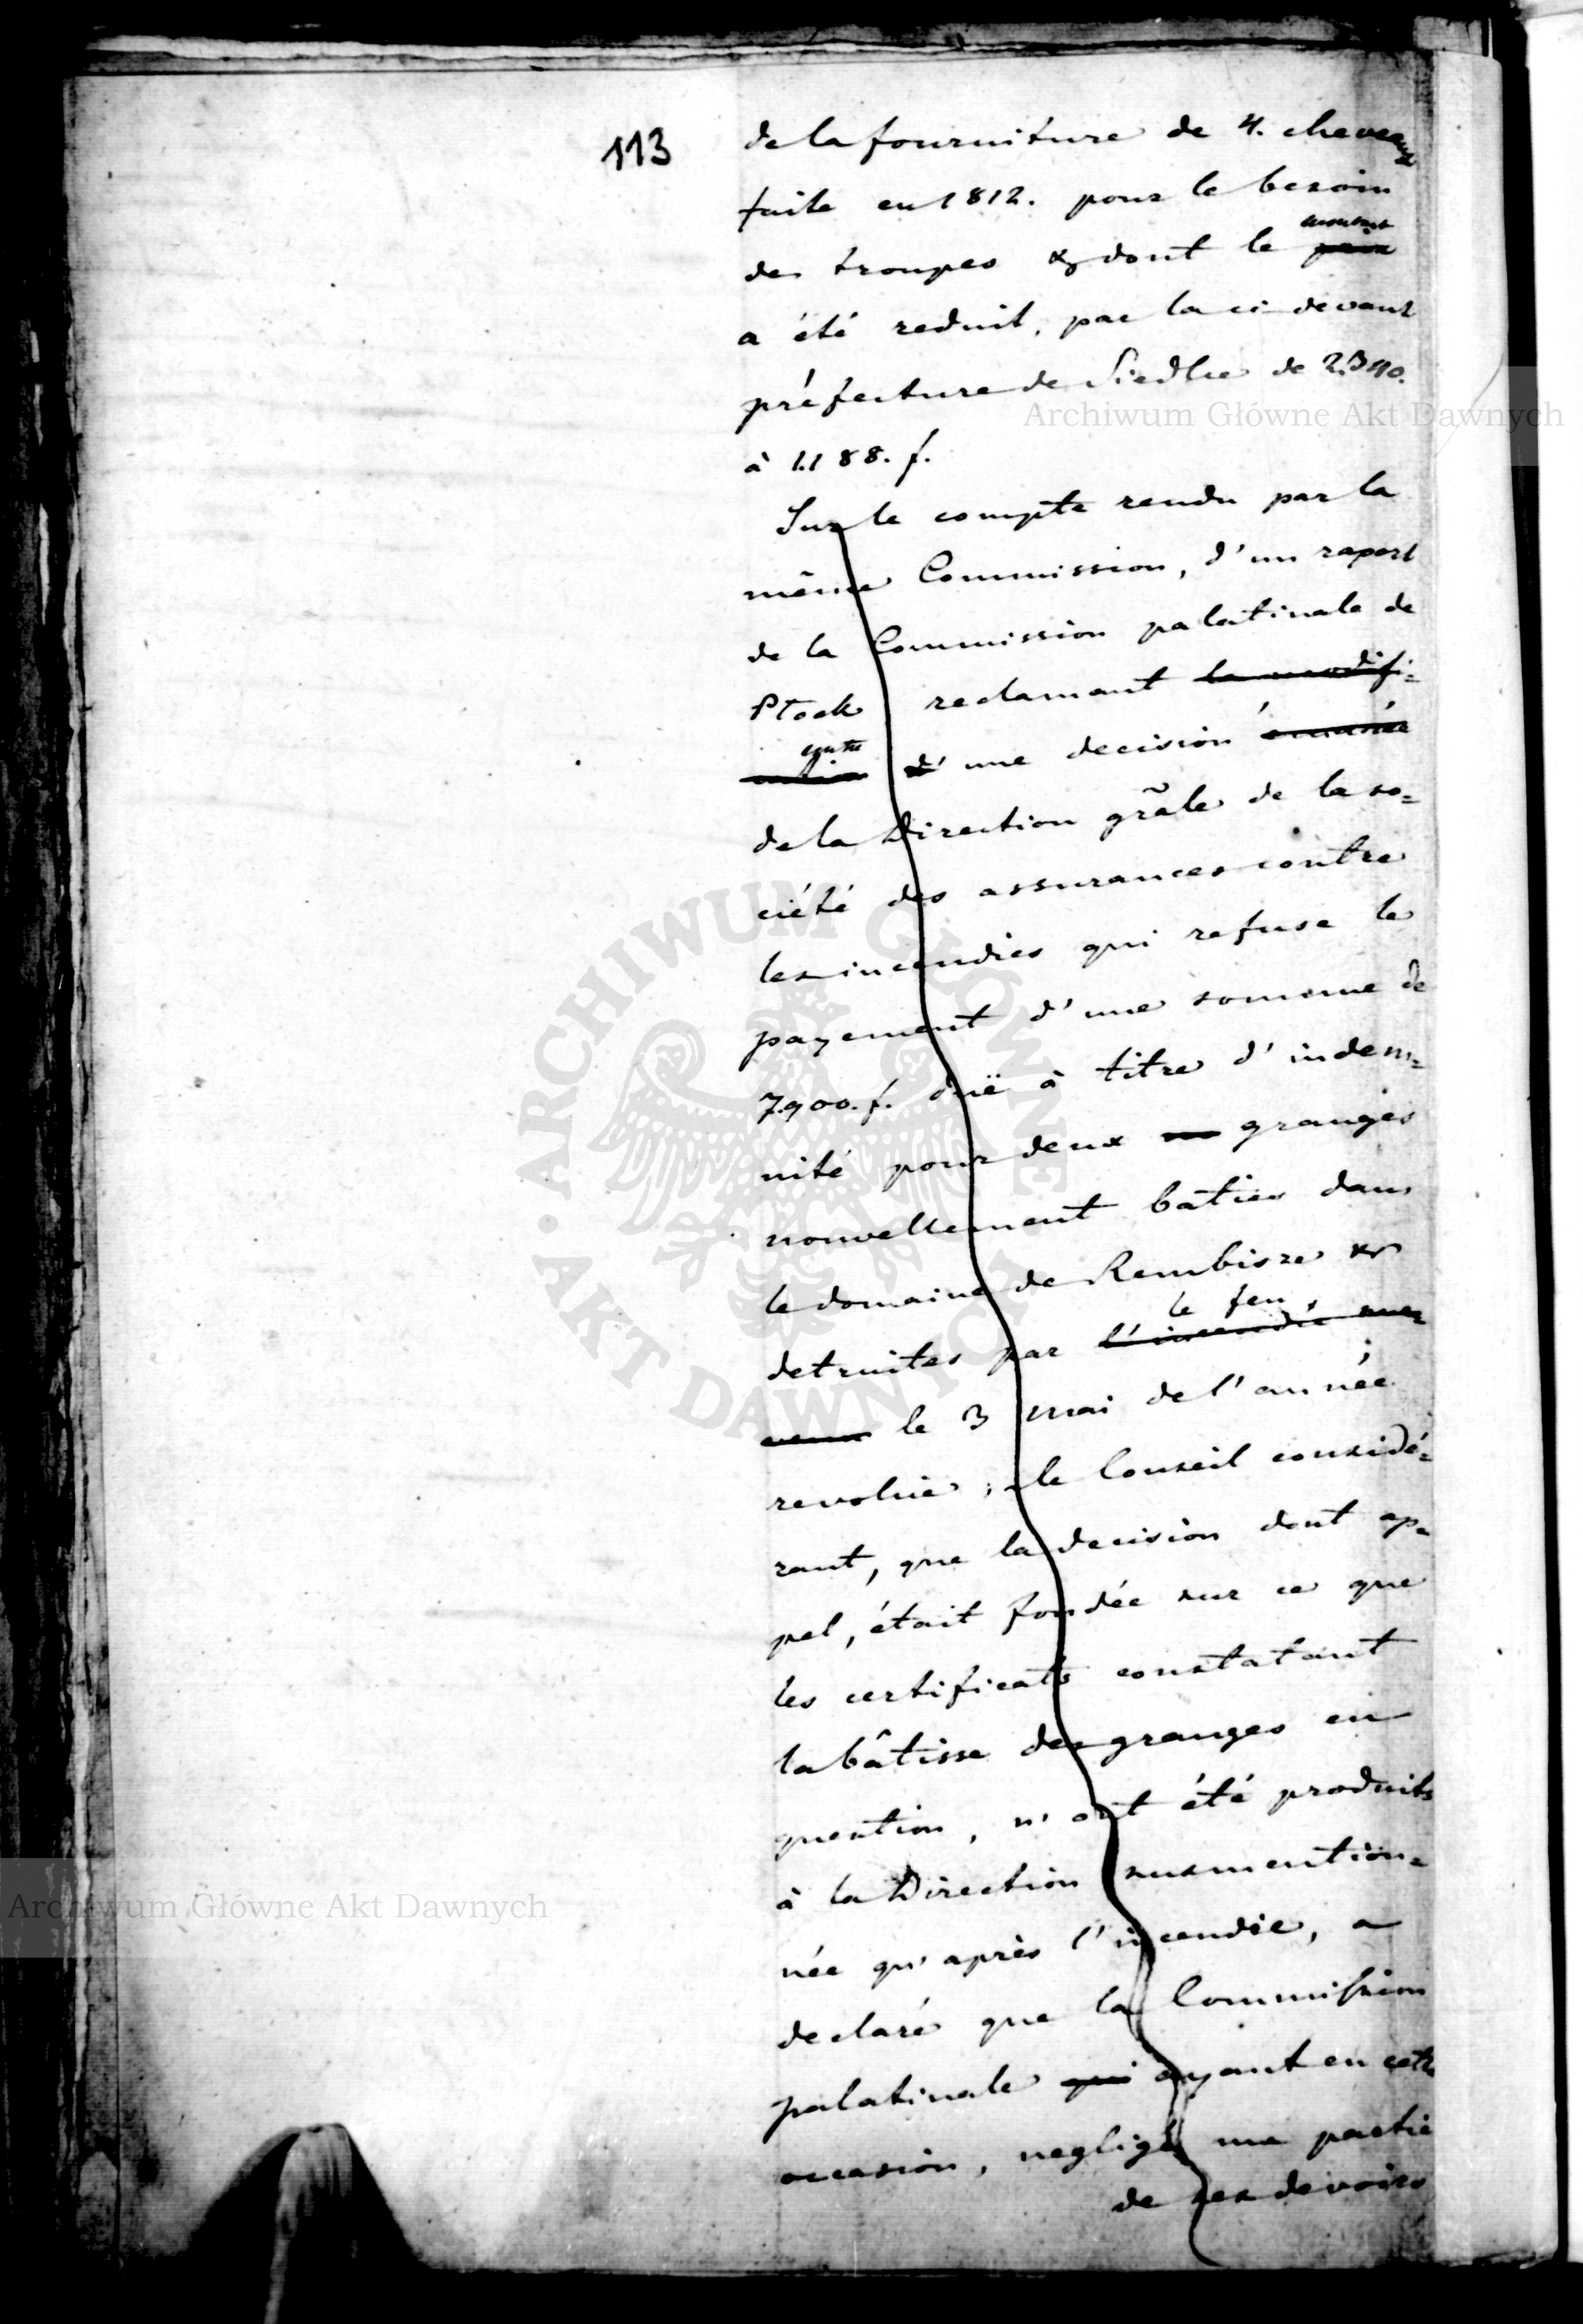 113
de la fourniture de 4. chevaux
faite en 1812. pour le besoin
des troupes & dont le montant
a été reduit, par la ci devant
préfecture de Siedlce de 2.340.
à 1.188. f.
Sur le compte rendu par la
même Commission, d'un raport
de la Commission palatinale de
Płock reclamant la modifi=
cation contre d'une decision émanée
de la Direction grãle de la so=
ciété des assurances contre
les incendies qui refuse le
payement d'une somme de
7.900. f. duë à titre d'indem=
nité pour deux granges
nouvellement bâties dans
le domaine de Rembisze &
detruites par l'incendie le feu,
le 3 mai de l'année
revoluë ; le Conseil considé=
rant, que la decision dont ap=
pel, était fondée sur ce que
les certificats constatant
la bâtisse des granges en
question, n'ont été produits
à la Direction susmention=
née qu'après l'incendie, a
declaré que la Commission
palatinale qui ayant en cette
occasion, negligé une partie
de ses devoirs
Archiwum Główne Akt Dawnych
Archiwum Główne Akt Dawnych
ARCHIWUM GŁÓWNE AKT DAWNYCH